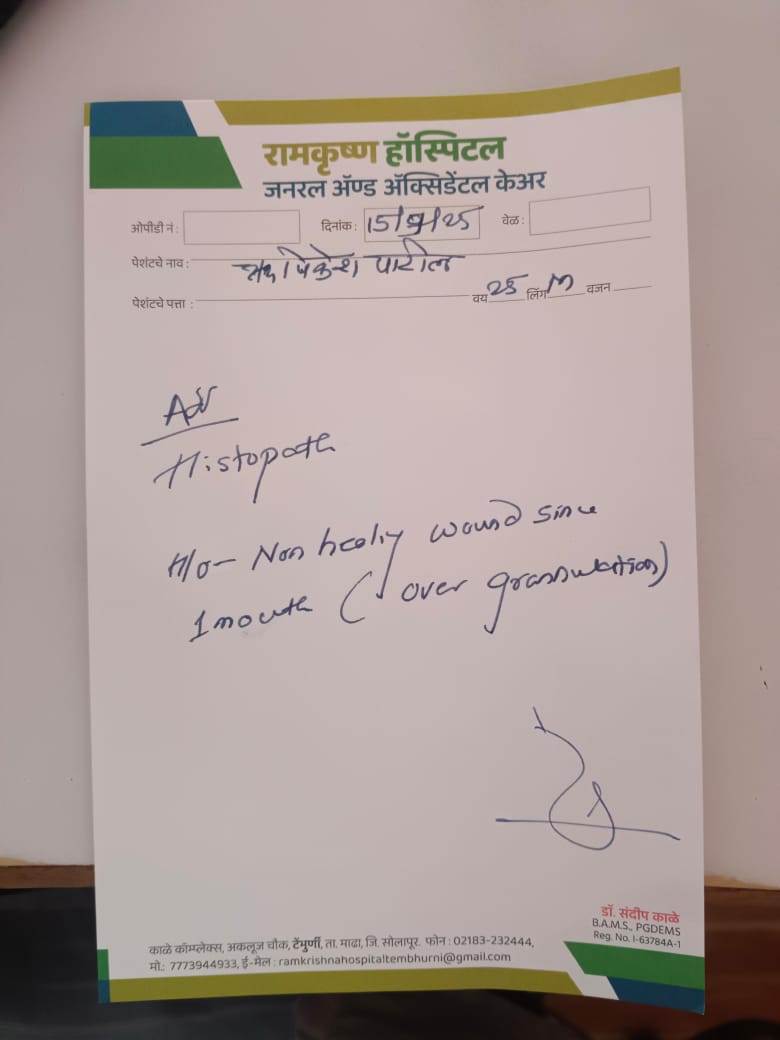 रामकृष्ण हॉस्पिटल
जनरल ॲण्ड ॲक्सिडेंटल केअर
ओपीडी नं : दिनांक : 15/9/25 वेळ :
पेशंटचे नाव : ऋषिकेश पाटील
पेशंटचे पत्ता : वय 25 लिंग M वजन
Adv
Histopath
H/o - Non healing wound since
1 month ( over grannulation)
डॉ. संदीप काळे
B.A.M.S., PGDEMS
Reg. No. I-63784A-1
काळे कॉम्प्लेक्स, अकलूज चौक, टेंभुर्णी, ता. माढा, जि. सोलापूर. फोन : 02183-232444,
मो.: 7773944933, ई-मेल : ramkrishnahospitaltembhurni@gmail.com